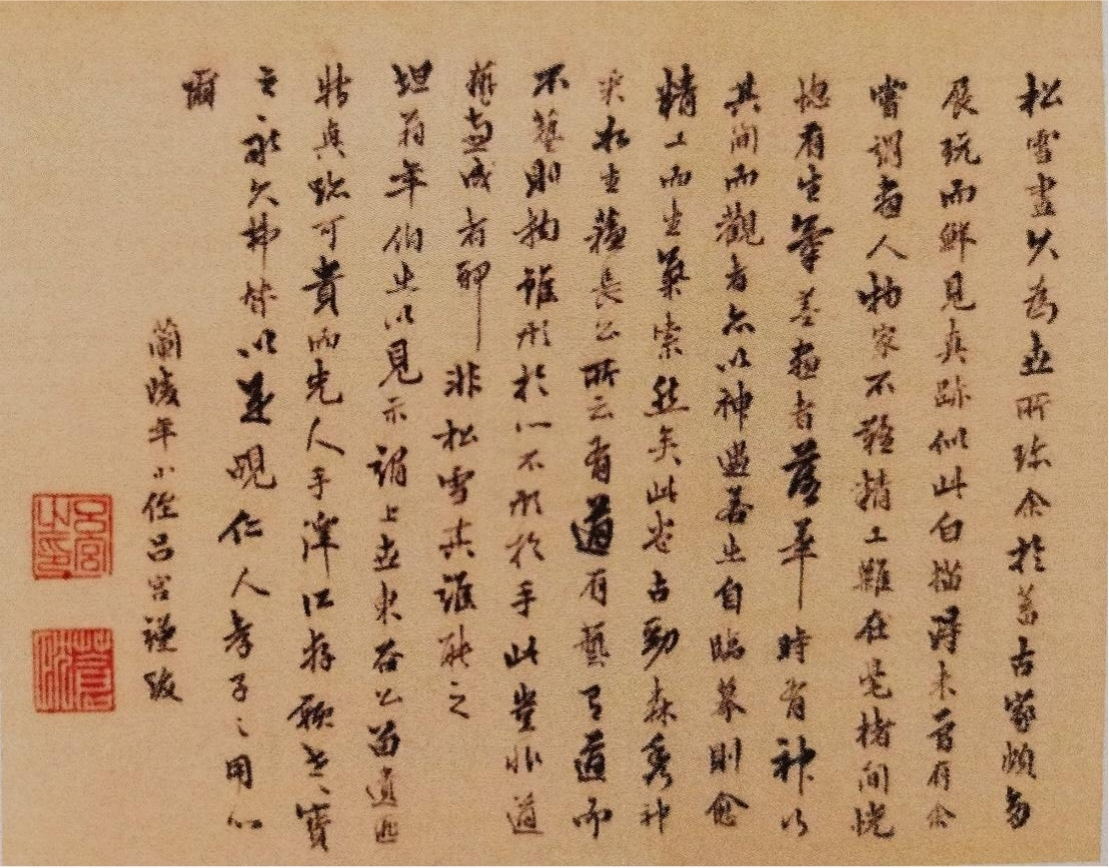 松雪畫久為世所珍余於蓄古家頗多
展玩而鮮見真跡似此白描得未曾有余
嘗謂畫人物家不難精工難在筆楮間恍
惚有生氣善畫者落筆時有神以
其間而觀者亦以神遇若止自臨摹則愈
精工而生氣索然矣此卷古勁森秀神
采如生蘇長公所云有道有藝有道而
不藝則物雖形於心不形於手此豈非道
藝兩成者耶非松雪其誰能之
坦翁年伯出以見示謂上世東谷公留遺迹
特真跡可貴而先人手澤江存願世寶
之永久弗替以是覘仁人孝子之用心
爾
蘭陵年小侄呂宮謹跋
呂宮之印